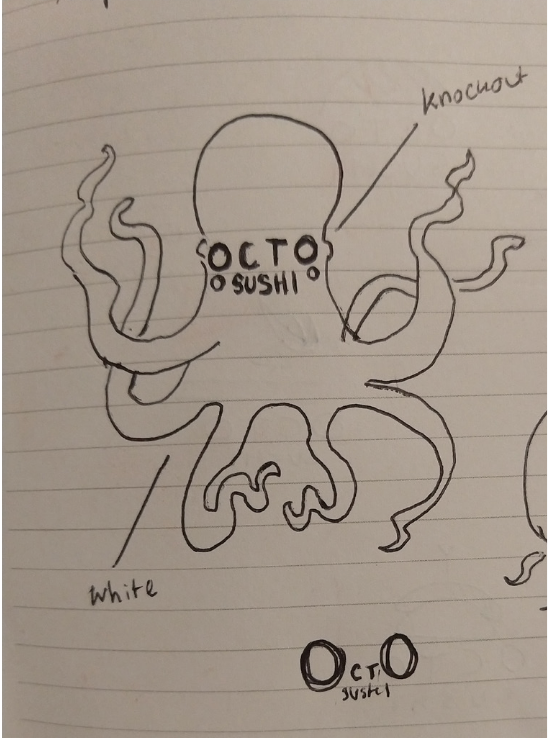 knockout
OCTO
SUSHI
white
OCTO
sushi